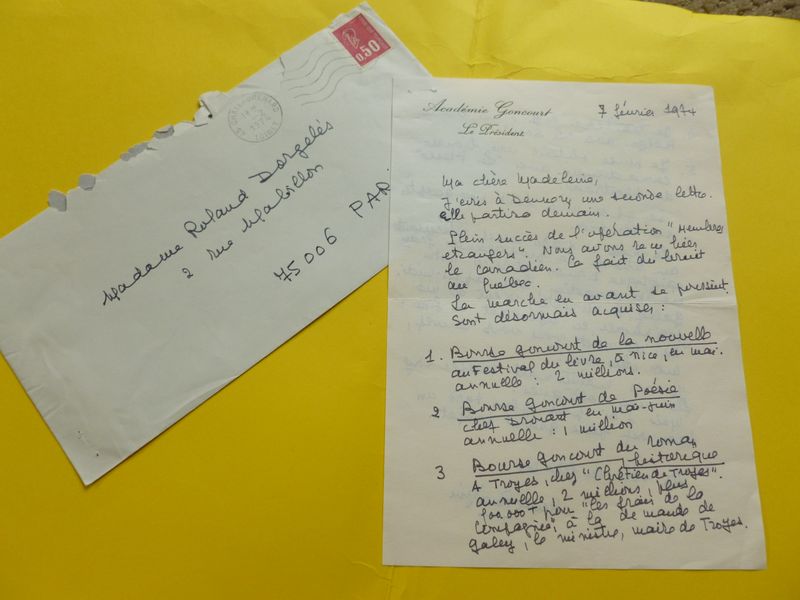 0.50
7-2
1974
Madame Roland Dorgelès
2 rue Mabillon
75006 PAR
Académie Goncourt
Le Président
7 février 1974
Ma chère Madeleine,
J'écris à une seconde lettre.
elle partira demain.
Plein succès de l'opération "Membres
étrangers". Nous avons reçu hier
le canadien. Ça fait du bruit
au Québec.
La marche en avant se poursuit.
Sont désormais acquises :
1. Bourse Goncourt de la nouvelle
au Festival du livre, à Nice, en mai.
annuelle : 2 millions.
2 Bourse Goncourt de Poésie
chez Drouant en mai-juin
annuelle : 1 million
3 Bourse Goncourt du roman
historique
A Troyes, chez "Chrétien de Troyes".
annuelle, 2 millions, plus
pour "les frais de la
Compagnie", à la demande de
Galley, le ministre, maire de Troyes.